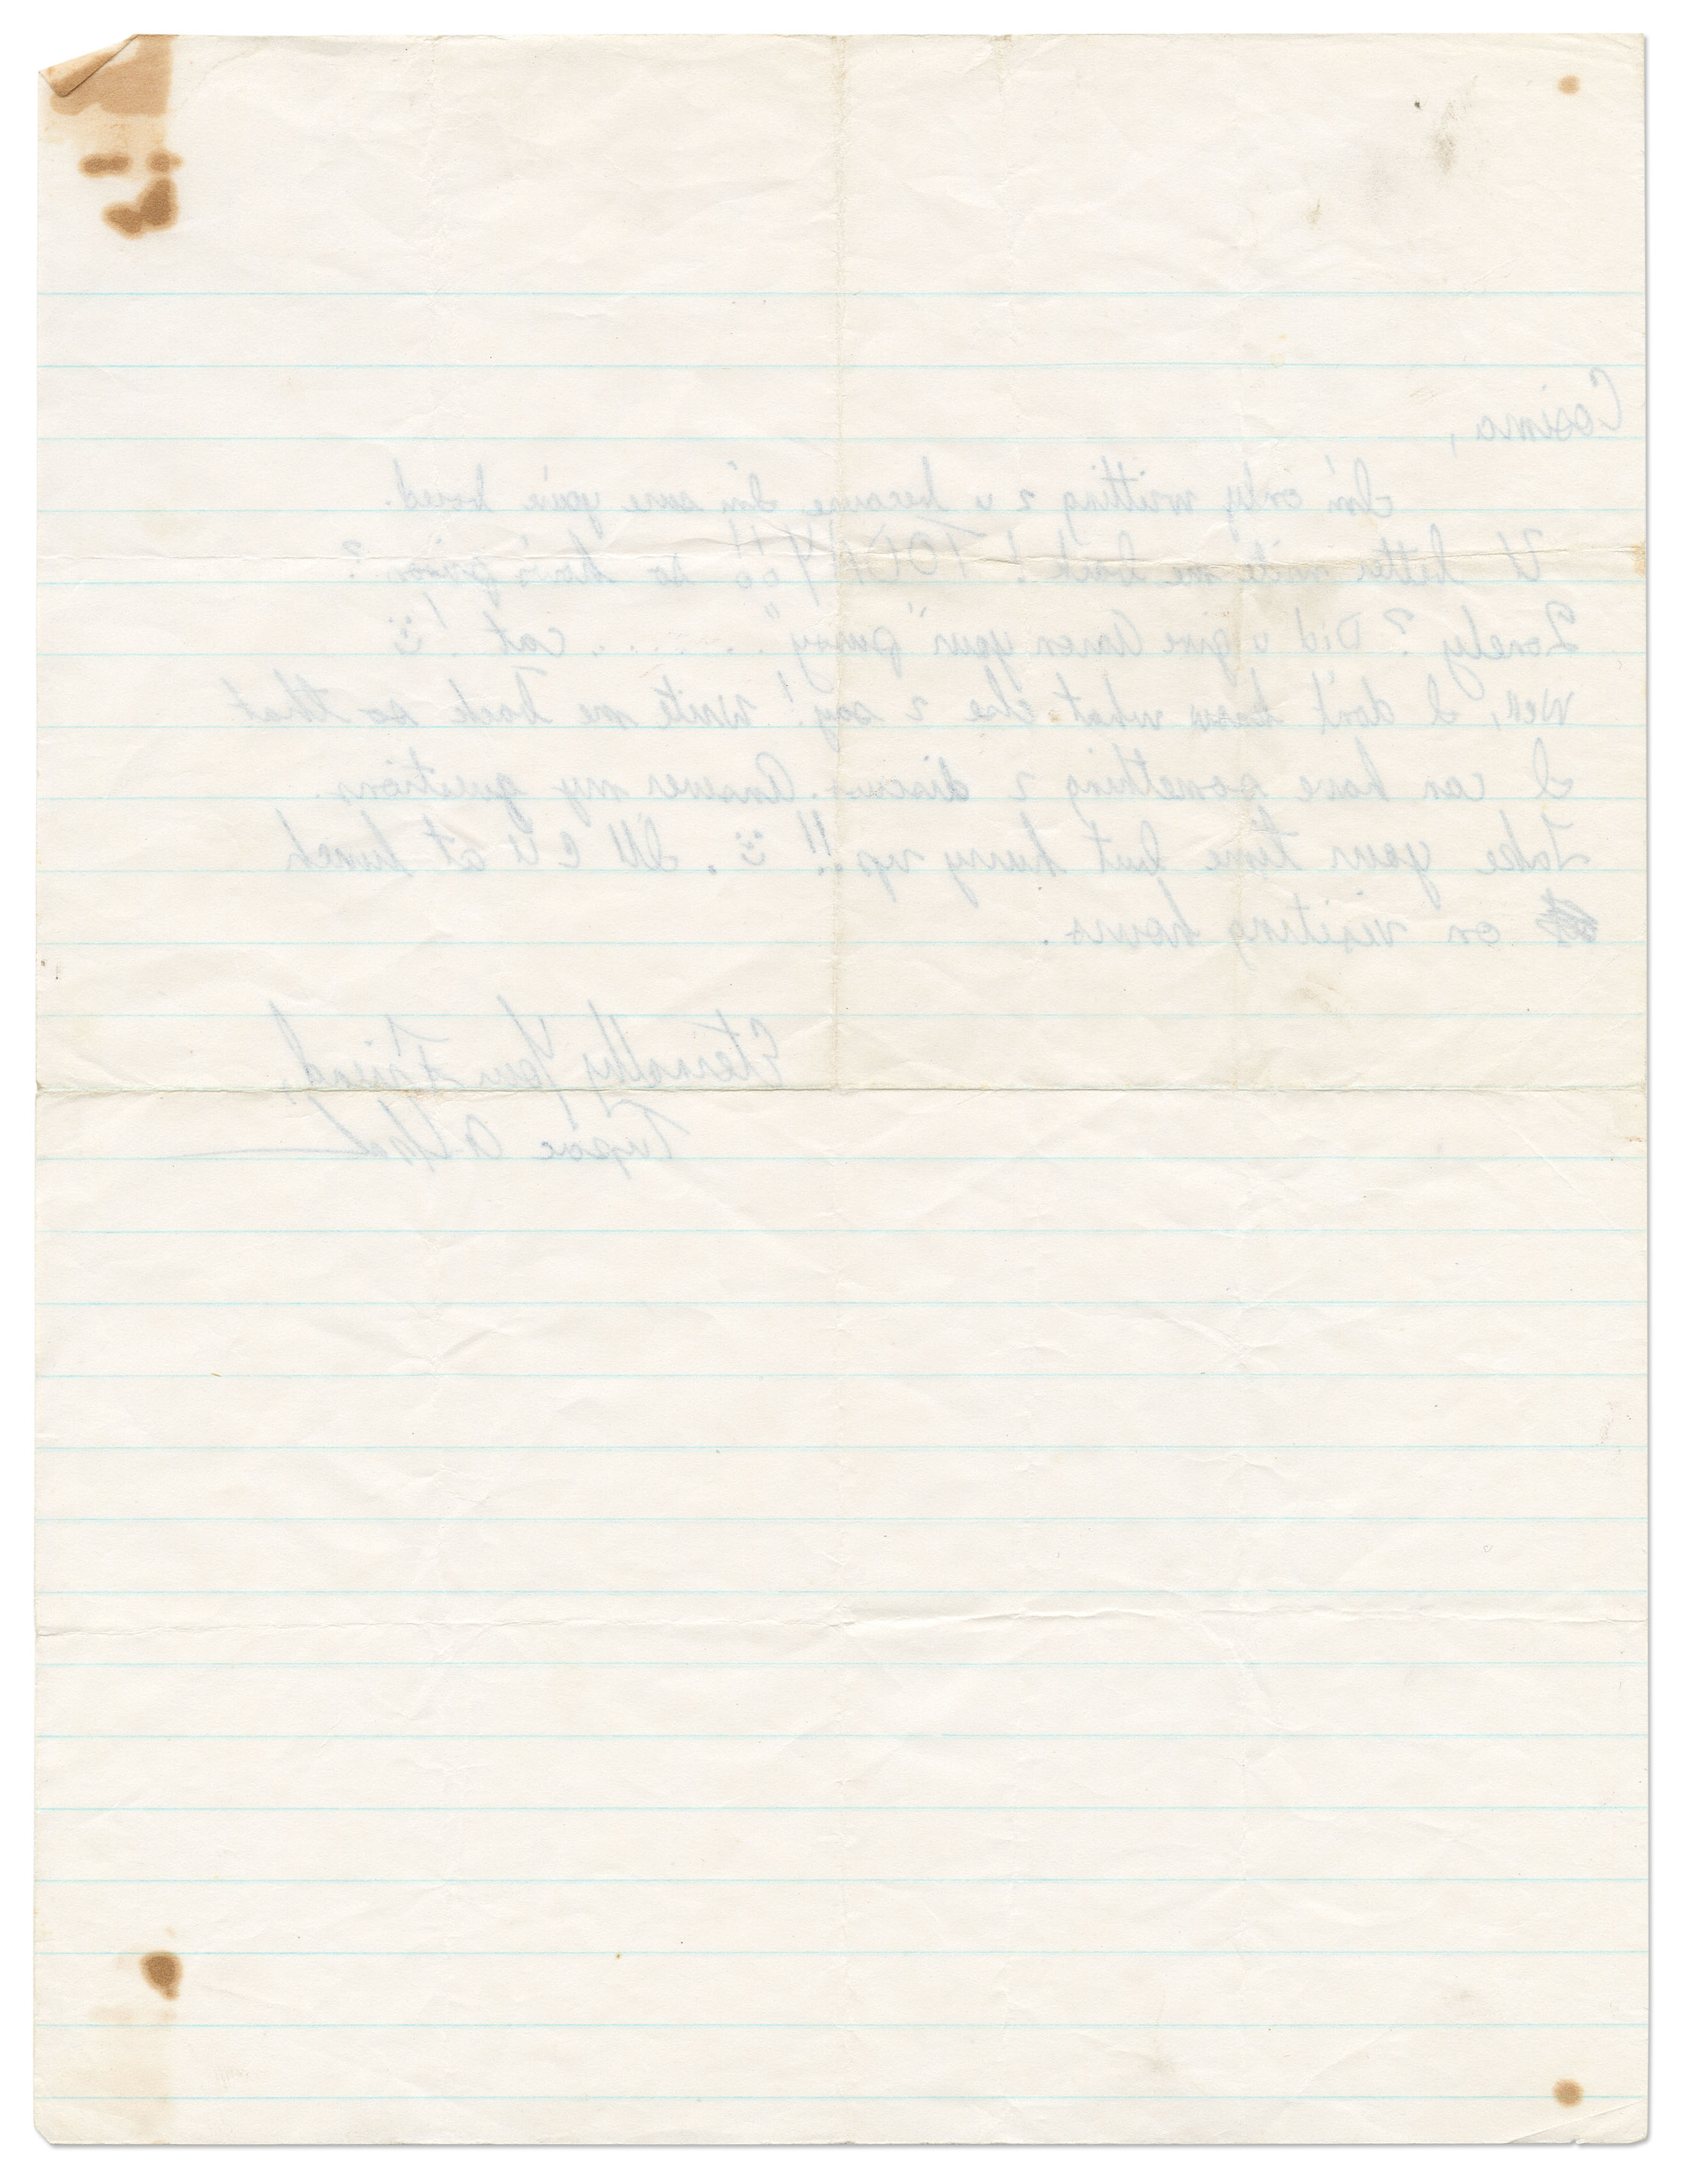 Cosima,
I'm only writting 2 u because I'm sure you're bored.
U better write me back! TODAY!! so how's prison?
Lonely? Did u give Aaren your "pussy" ........ cat! :)
Well, I don't know what else 2 say! Write me back so that
I can have something 2 discuss. Answer my questions.
Take your time but hurry up!! :). I'll C U at lunch
on visiting hours.
Eternally Your Friend,